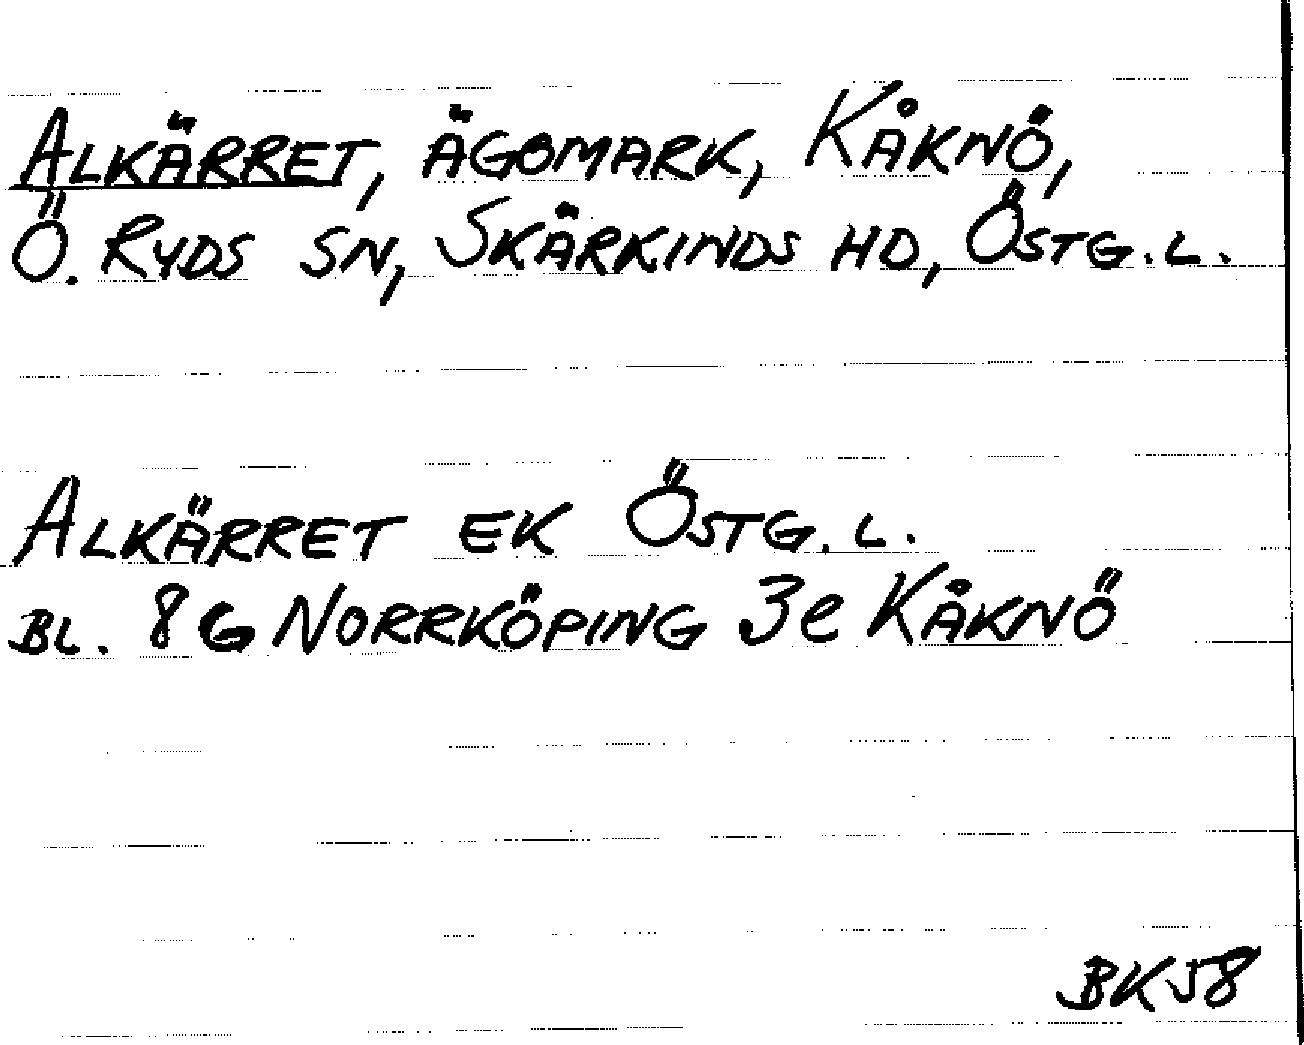 ALKÄRRET, ÄGOMARK, KÅKNÖ,
Ö. RYDS SN, SKÄRKINDS HD, ÖSTG.L.
ALKÄRRET EK ÖSTG.L.
BL. 8G NORRKÖPING 3e KÅKNÖ
BK58